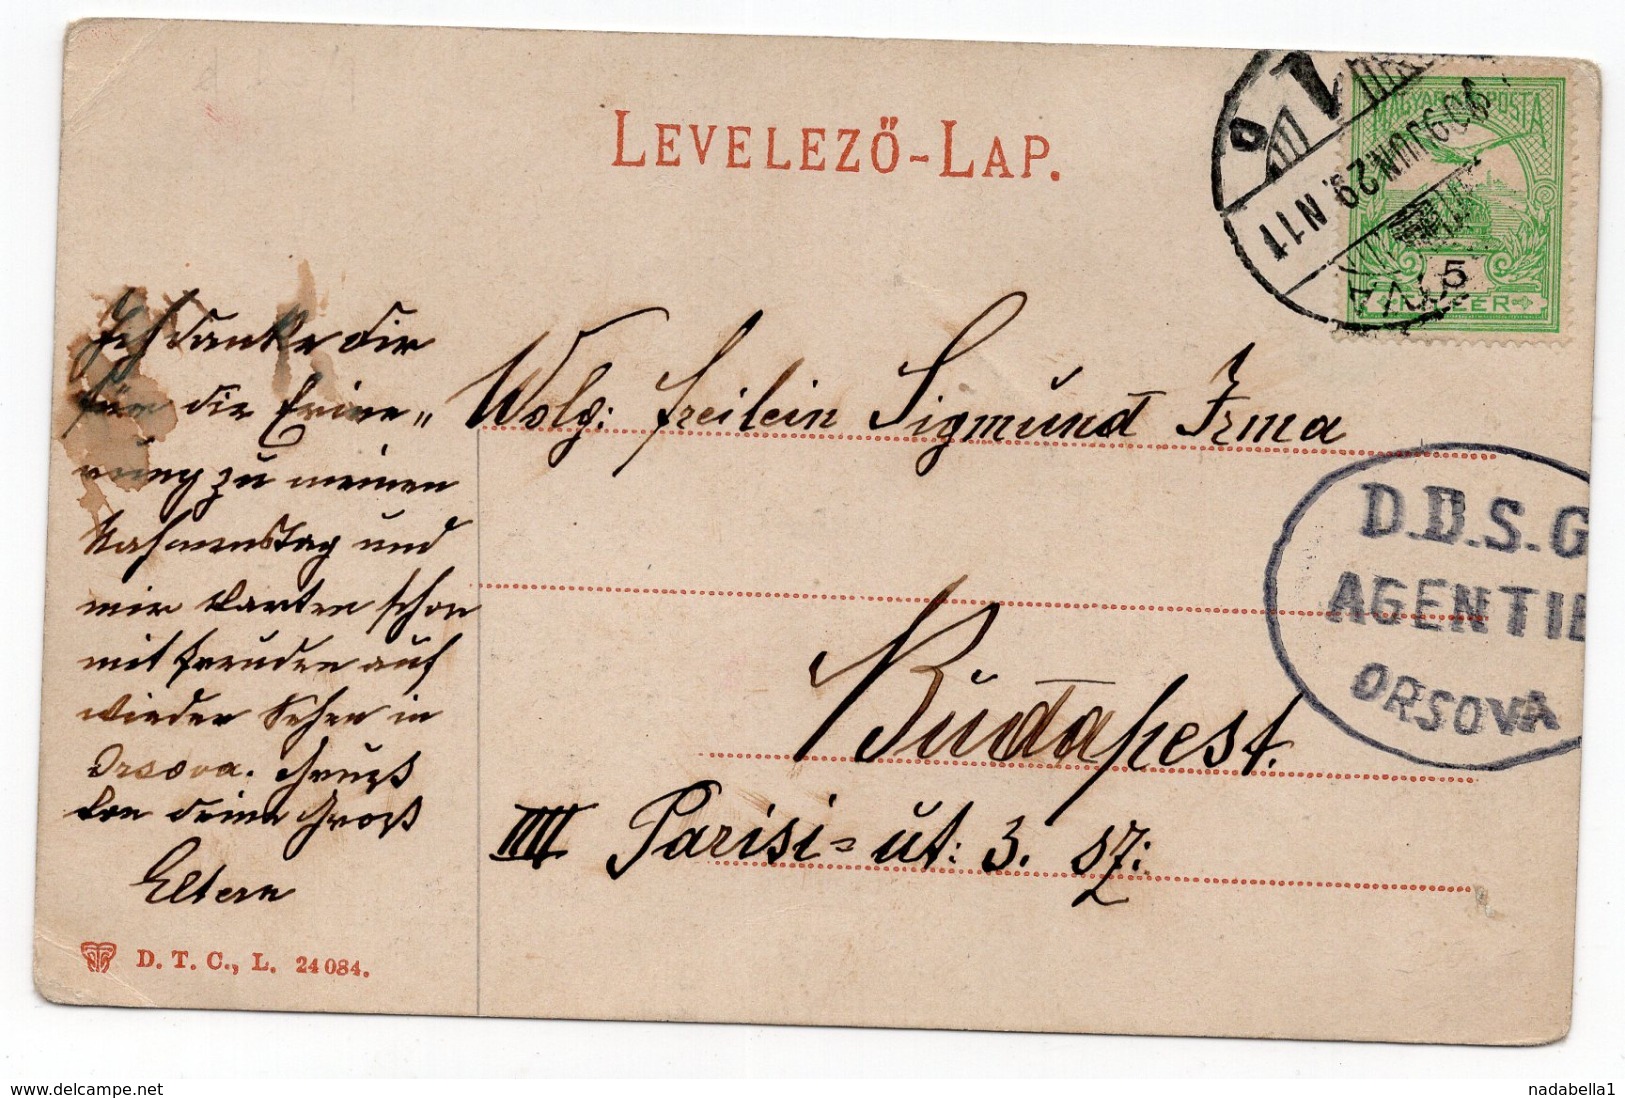 LEVELEZŐ-LAP.
MAGYAR KIR. POSTA
909 JUN. 29. N 11
5
FILLÉR
Ich danke dir
für die Erine„
rung zu meinen
Nahmenstag und
wir warten schon
mit freuden auf
wieder Sehen in
Orsova. Grüß
von deine Groß
Eltern
Wolg: freilein Sigmund Irma
D.D.S.G
AGENTIE
ORSOVA
Budapest.
IIII Parisi-ut: 3. sz:
D. T. C., L. 24084.
www.delcampe.net
nadabella1